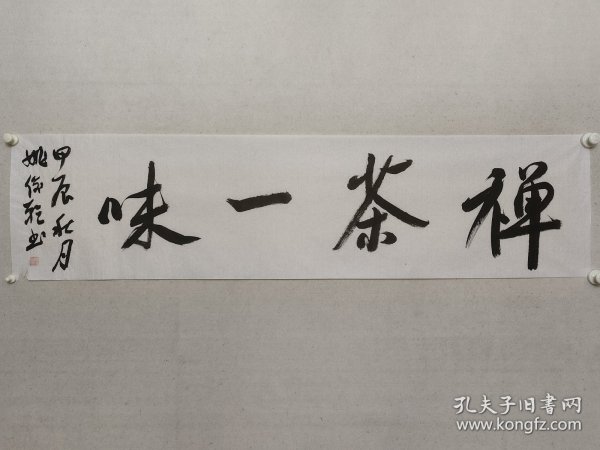 禅茶一味
甲辰秋月
孔夫子旧書网
www.kongfz.com